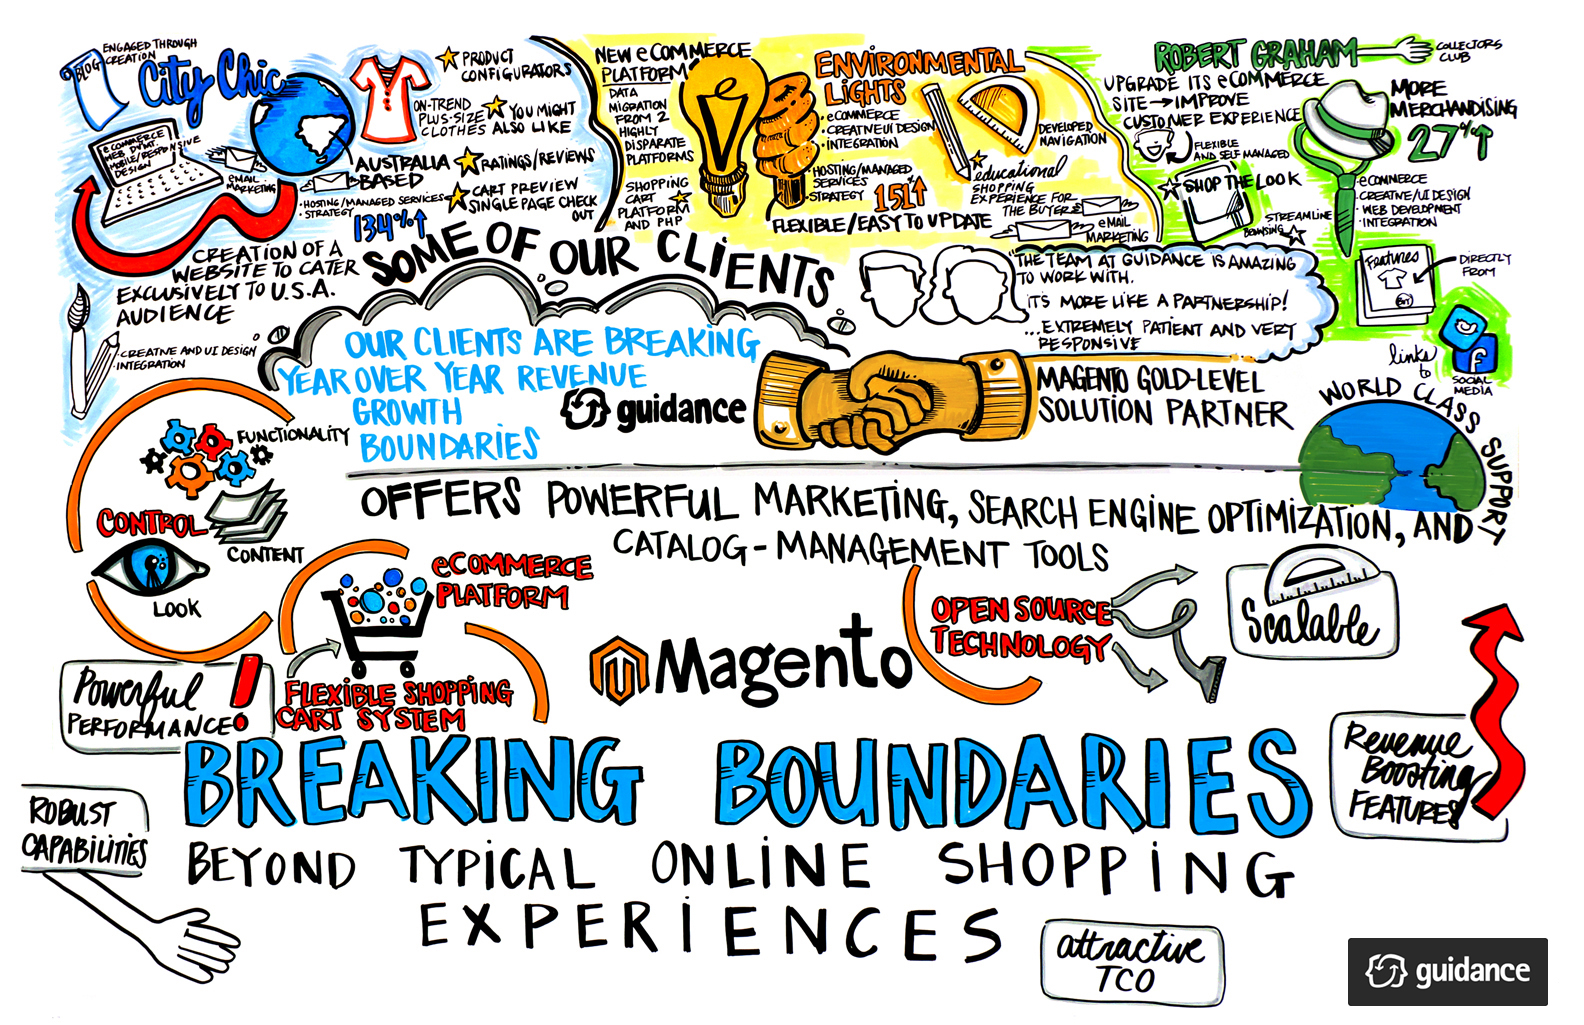 ENGAGED THROUGH
CREATION
BLOG
City Chic
eCOMMERCE
WEB DVMT.
MOBILE/RESPONSIVE
DESIGN
eMAIL
MARKETING
ON-TREND
PLUS-SIZE
CLOTHES
AUSTRALIA
BASED
· HOSTING/MANAGED SERVICES
· STRATEGY
134%↑
PRODUCT
CONFIGURATORS
YOU MIGHT
ALSO LIKE
RATINGS/REVIEWS
CART PREVIEW
SINGLE PAGE CHECK
OUT
CREATION OF A
WEBSITE TO CATER
EXCLUSIVELY TO U.S.A.
AUDIENCE
· CREATIVE AND UI DESIGN
· INTEGRATION
NEW eCOMMERCE
PLATFORM
DATA
MIGRATION
FROM 2
HIGHLY
DISPARATE
PLATFORMS
SHOPPING
CART
PLATFORM
AND PHP
ENVIRONMENTAL
LIGHTS
· eCOMMERCE
· CREATIVE UI DESIGN
· INTEGRATION
· HOSTING/MANAGED
SERVICES
· STRATEGY
151↑
FLEXIBLE/EASY TO UPDATE
DEVELOPED
NAVIGATION
educational
SHOPPING
EXPERIENCE FOR
THE BUYER
eMAIL
MARKETING
ROBERT GRAHAM
COLLECTORS
CLUB
UPGRADE ITS eCOMMERCE
SITE → IMPROVE
CUSTOMER EXPERIENCE
FLEXIBLE
AND SELF MANAGED
SHOP THE LOOK
STREAMLINE
BROWSING
MORE
MERCHANDISING
27%↑
· eCOMMERCE
· CREATIVE/UI DESIGN
· WEB DEVELOPMENT
· INTEGRATION
Features
DIRECTLY
FROM
links
to
SOCIAL
MEDIA
SOME OF OUR CLIENTS
"THE TEAM AT GUIDANCE IS AMAZING
TO WORK WITH.
IT'S MORE LIKE A PARTNERSHIP!
...EXTREMELY PATIENT AND VERY
RESPONSIVE
OUR CLIENTS ARE BREAKING
YEAR OVER YEAR REVENUE
GROWTH
BOUNDARIES
guidance
MAGENTO GOLD-LEVEL
SOLUTION PARTNER
WORLD CLASS SUPPORT
FUNCTIONALITY
CONTROL
CONTENT
LOOK
OFFERS POWERFUL MARKETING, SEARCH ENGINE OPTIMIZATION, AND
CATALOG-MANAGEMENT TOOLS
eCOMMERCE
PLATFORM
FLEXIBLE SHOPPING
CART SYSTEM
Magento
OPEN SOURCE
TECHNOLOGY
Scalable
Powerful
PERFORMANCE!
BREAKING BOUNDARIES
Revenue
Boosting
FEATURES
ROBUST
CAPABILITIES
BEYOND TYPICAL ONLINE SHOPPING
EXPERIENCES
attractive
TCO
guidance